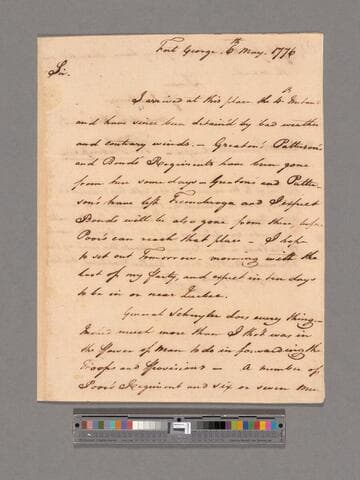 Fort George. 6th May. 1776
Sir.
I arrived at this place the 4th Instant
and have since been detain'd by bad weather
and contrary winds. – Greaton's Patterson's
and Bonds Regiments have been gone
from here some days – Greatons and Patter-
son's have left Ticonderoga and I expect
Bonds will be also gone from there, before
Poor's can reach that place – I hope
to set out Tomorrow – morning with the
last of my party, and expect in ten days
to be in or near Quebec.
General Schuyler does every thing –
indeed much more than I tho't was in
the Power of Man to do in forwarding the
Troops and Provisions – A number of
Poor's Regiment and six or seven